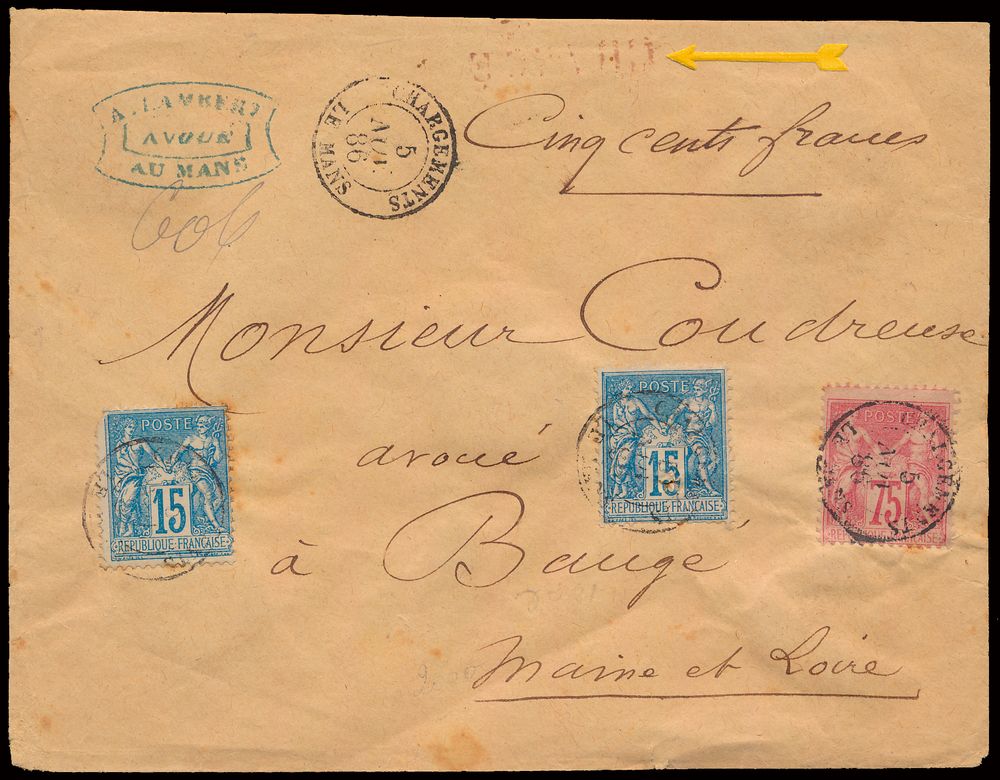 A. LAMBERT
AVOUÉ
AU MANS
CHARGEMENTS
5
AVR.
86
LE MANS
Cinq cents francs
606
Monsieur Coudreuse
avoué
à Baugé
Maine et Loire
POSTE
15
REPUBLIQUE FRANÇAISE
POSTE
15
REPUBLIQUE FRANÇAISE
75
CHARGEMENTS
5
LE MANS